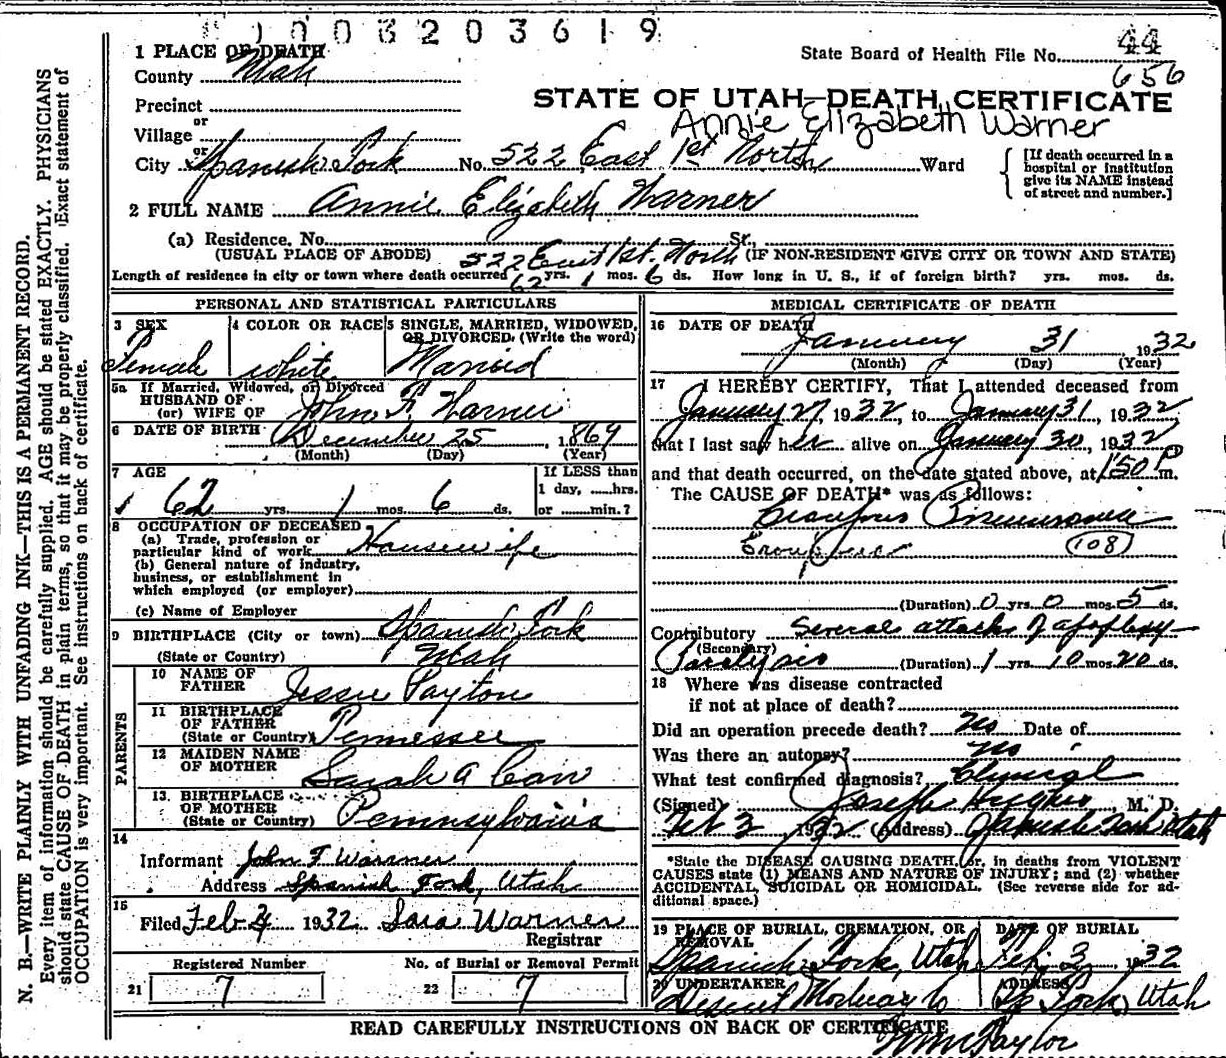 0 0 3 2 0 3 6 1 9
1 PLACE OF DEATH
State Board of Health File No. 44
656
County Utah
Precinct
or
STATE OF UTAH—DEATH CERTIFICATE
Annie Elizabeth Warner
Village
or
City Spanish Fork No. 522 East 1st North St. Ward
[If death occurred in a hospital or institution give its NAME instead of street and number.]
2 FULL NAME Annie Elizabeth Warner
(a) Residence. No. St.
(USUAL PLACE OF ABODE) 522 East 1st North (IF NON-RESIDENT GIVE CITY OR TOWN AND STATE)
Length of residence in city or town where death occurred 62 yrs. 1 mos. 6 ds. How long in U. S., if of foreign birth? yrs. mos. ds.
PERSONAL AND STATISTICAL PARTICULARS
3 SEX 4 COLOR OR RACE 5 SINGLE, MARRIED, WIDOWED, OR DIVORCED. (Write the word)
Female white Married
5a If Married, Widowed, or Divorced
HUSBAND OF
(or) WIFE OF John F. Warner
6 DATE OF BIRTH December 25, 1869
(Month) (Day) (Year)
7 AGE
If LESS than
1 day, ......hrs.
62 yrs. 1 mos. 6 ds. or ......min.?
8 OCCUPATION OF DECEASED
(a) Trade, profession or
particular kind of work Housewife
(b) General nature of industry,
business, or establishment in
which employed (or employer)
(c) Name of Employer
9 BIRTHPLACE (City or town) Spanish Fork
(State or Country) Utah
PARENTS
10 NAME OF
FATHER Jessie Payton
11 BIRTHPLACE
OF FATHER
(State or Country) Tennessee
12 MAIDEN NAME
OF MOTHER Sarah A
13. BIRTHPLACE
OF MOTHER
(State or Country) Pennsylvania
14
Informant John F Warner
Address Spanish Fork, Utah
15
Filed Feb 1932 Sara Warner
Registrar
Registered Number No. of Burial or Removal Permit
21 7 22 7
MEDICAL CERTIFICATE OF DEATH
16 DATE OF DEATH
January 31 1932
(Month) (Day) (Year)
17 I HEREBY CERTIFY, That I attended deceased from
January 27, 1932, to January 31, 1932
that I last saw her alive on January 30, 1932
and that death occurred, on the date stated above, at 1:50 P m.
The CAUSE OF DEATH* was as follows:
Croupous Pneumonia
Croupous 108
(Duration) 0 yrs. 0 mos. 5 ds.
Contributory Several attacks of apoplexy
(Secondary)
Paralysis (Duration) 1 yrs. 10 mos. 20 ds.
18 Where was disease contracted
if not at place of death?
Did an operation precede death? No Date of
Was there an autopsy? No
What test confirmed diagnosis? Clinical
(Signed) Joseph Hughes, M. D.
Feb 3 1932 (Address) Spanish Fork Utah
*State the DISEASE CAUSING DEATH, or, in deaths from VIOLENT
CAUSES state (1) MEANS AND NATURE OF INJURY; and (2) whether
ACCIDENTAL, SUICIDAL OR HOMICIDAL. (See reverse side for ad-
ditional space.)
19 PLACE OF BURIAL, CREMATION, OR REMOVAL DATE OF BURIAL
Spanish Fork, Utah Feb. 3, 1932
20 UNDERTAKER ADDRESS
Deseret Mortuary Co Sp Fork, Utah
READ CAREFULLY INSTRUCTIONS ON BACK OF CERTIFICATE
Taylor
N. B.—WRITE PLAINLY WITH UNFADING INK—THIS IS A PERMANENT RECORD.
Every item of information should be carefully supplied. AGE should be stated EXACTLY. PHYSICIANS
should state CAUSE OF DEATH in plain terms, so that it may be properly classified. Exact statement of
OCCUPATION is very important. See instructions on back of certificate.